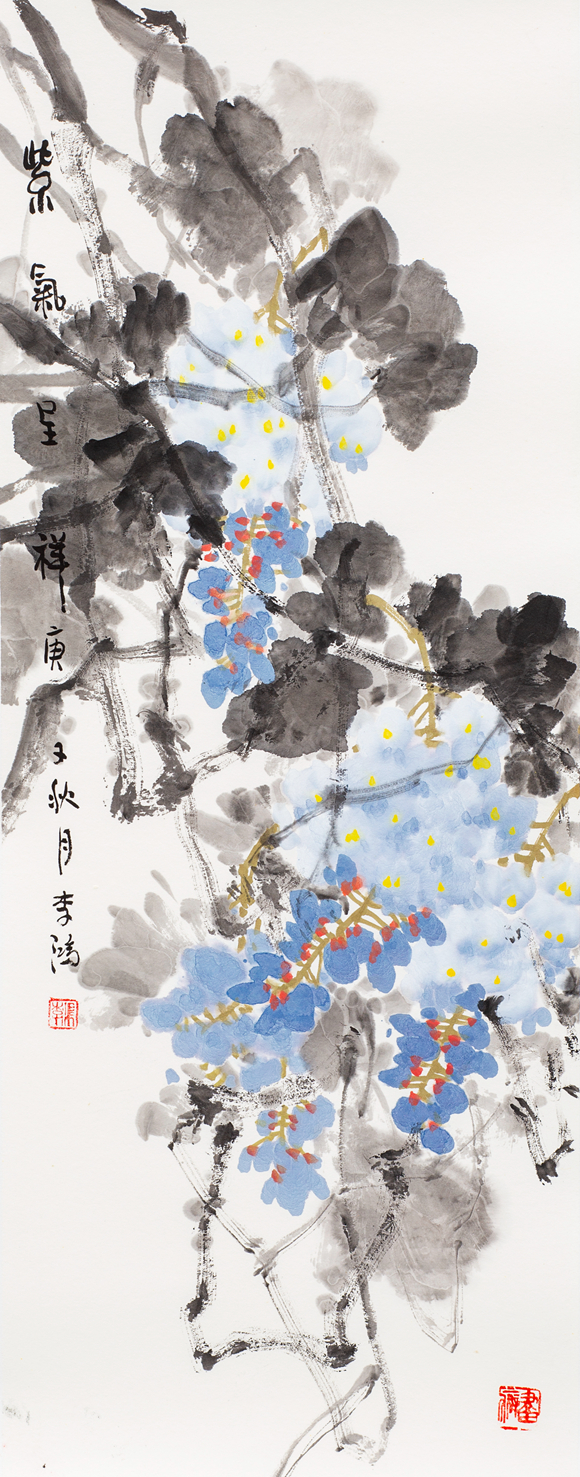 紫氣呈祥 庚子秋月李鴻